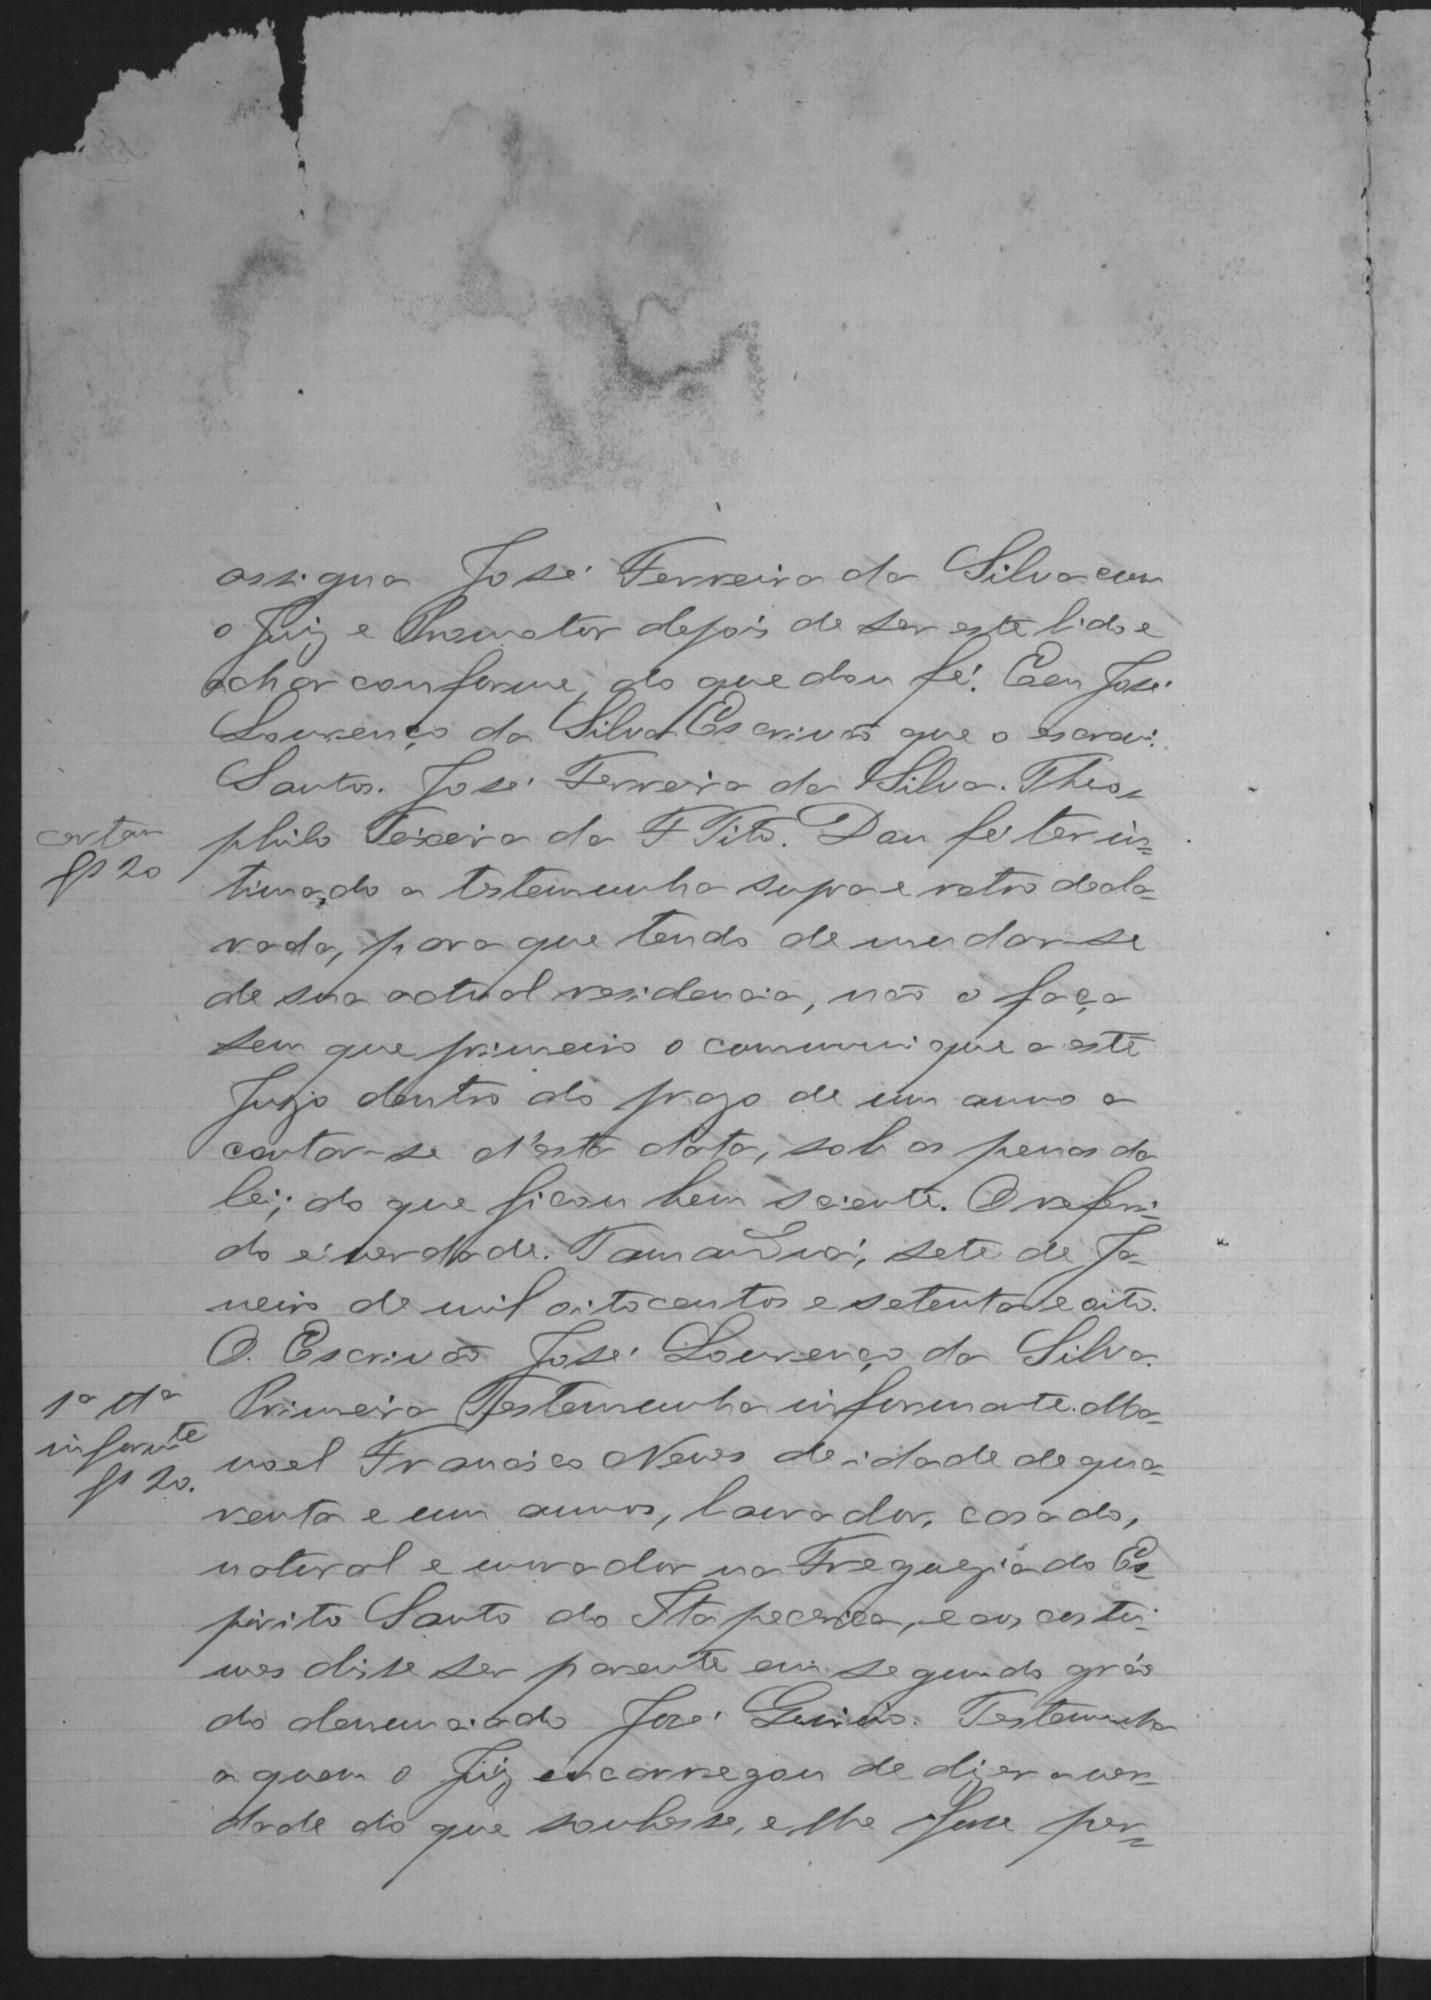 assigna José Ferreira da Silva com
o Juiz e Promotor depois de ser este lido e
achar conforme, do que dou fé. E eu José
Lourenço da Silva Escrivão que o escrevi.
Santos. José Ferreira da Silva. Theo-
philo Teixeira da F Tito. Dou fé ter in-
timado a testemunha supra e retro decla-
rada, para que tendo de mudar-se
de sua actual residencia, não o faça
sem que primeiro o communique a este
Juizo dentro do prazo de um anno a
contar-se d'esta data, sob as penas da
lei; do que ficou bem sciente. O referi-
do é verdade. Tamanduá, sete de Ja-
neiro de mil oitocentos e setenta e oito.
O Escrivão José Lourenço da Silva.
Primeira Testemunha informante. Ma-
noel Francisco Neves de idade de qua-
renta e um annos, lavrador, casado,
natural e morador na Freguezia do Es-
pirito Santo do Itapecerica, e aos costu-
mes disse ser parente em segundo gráo
do denunciado José Quirino. Testemunha
a quem o Juiz encarregou de dizer a ver-
dade do que soubesse, e lhe fosse per-
fs 20
1ª tª
informte
fs 20.